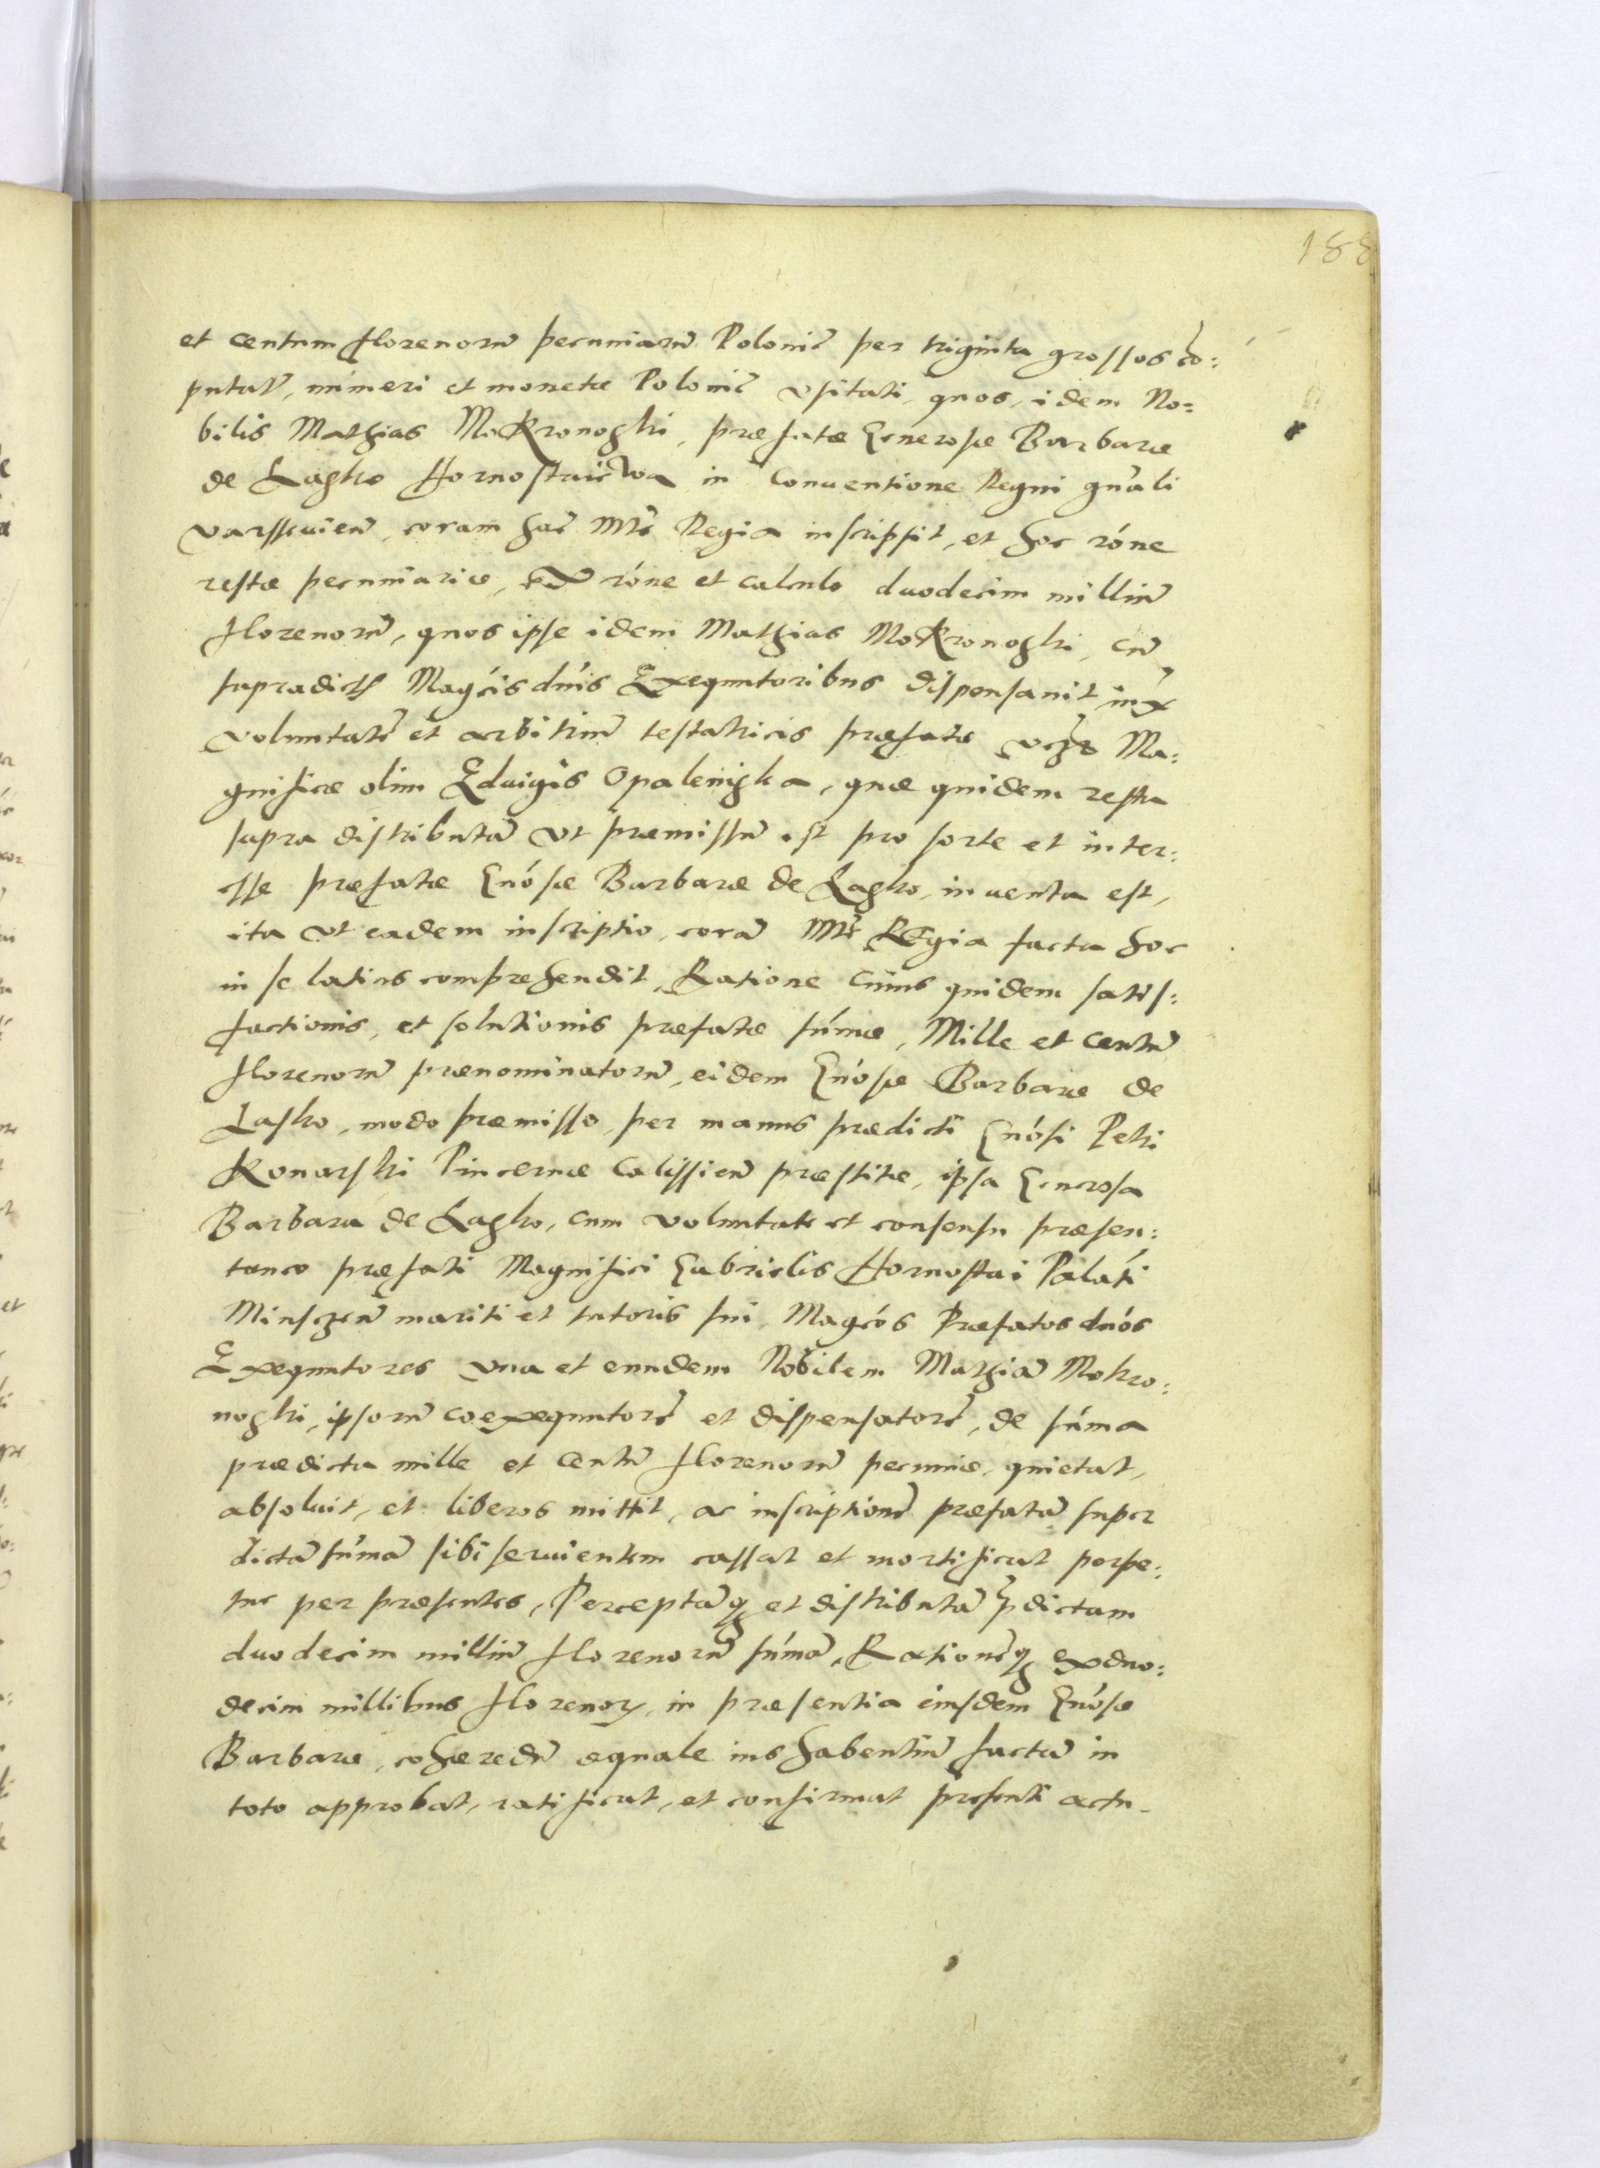 188
et centum florenorũ pecuniarũ Polonic̃ per triginta grossos cõ:
putat̃, numeri et monetæ Polonic̃ vsitati, quos, idem No:
bilis Mathias Mokronoghi, præfatæ Generosæ Barbaræ
de Lagko Hornostaiewa in Conuentione Regni gñali
varsseuieñ, coram hac Mte Regia inscripsit, et hoc róne
restæ pecuniariæ, ex róne et calculo duodecim milliũ
florenorũ, quos ipse idem Mathias Mokronoghi, cũ
supradictis Magcis dñis Exequutoribus dispensauit iux̃
voluntatẽ et arbitriũ testatricis præfatæ Ma:
gnificæ olim Eduigis Opalenigka, quæ quidem resta
supra distributã vt præmissũ est pro sorte et inter:
esse præfatæ Gnósæ Barbaræ de Lagko, inuenta est,
ita vt eadem inscriptio, corã Mte Regia facta hoc
in se latius comprehendit, Ratione cuius quidem satis:
factionis, et solutionis præfatæ súmæ, Mille et Centũ
florenorũ prænominatorũ, eidem Gnósæ Barbaræ de
Lasko, modo præmisso, per manus prædicti Gnósi Petri
Konarski Pincernæ Calissieñ præstitæ, ipsa Generosa
Barbara de Lagko, cum voluntate et consensu præsen:
taneo præfati Magnifici Gabrielis Hornostai Paláti
Minsczeñ mariti et tutoris sui, Magcós Præfatos dnós
Exequutores vna et eundem Nobilem Mathiã Mokro:
noghi, ipsorũ coexequutorẽ et dispensatorẽ, de súma
prædicta mille et Centũ florenorũ pecuniæ, quietat,
absoluit, et liberos mittit, ac inscriptionẽ præfatã super
dictã súmã sibi seruientem cassat et mortificat perpe:
tue per præsentes, Perceptãq et distributã p̃dictam
duodecim milliũ florenorũ súmã, Rationẽq exduo:
decim millibus florenorꝝ, in præsentia eiusdem Gnósæ
Barbaræ, cohæredũ æquale ius habentiũ factã in
toto approbat, ratificat, et confirmat præsenti actu.